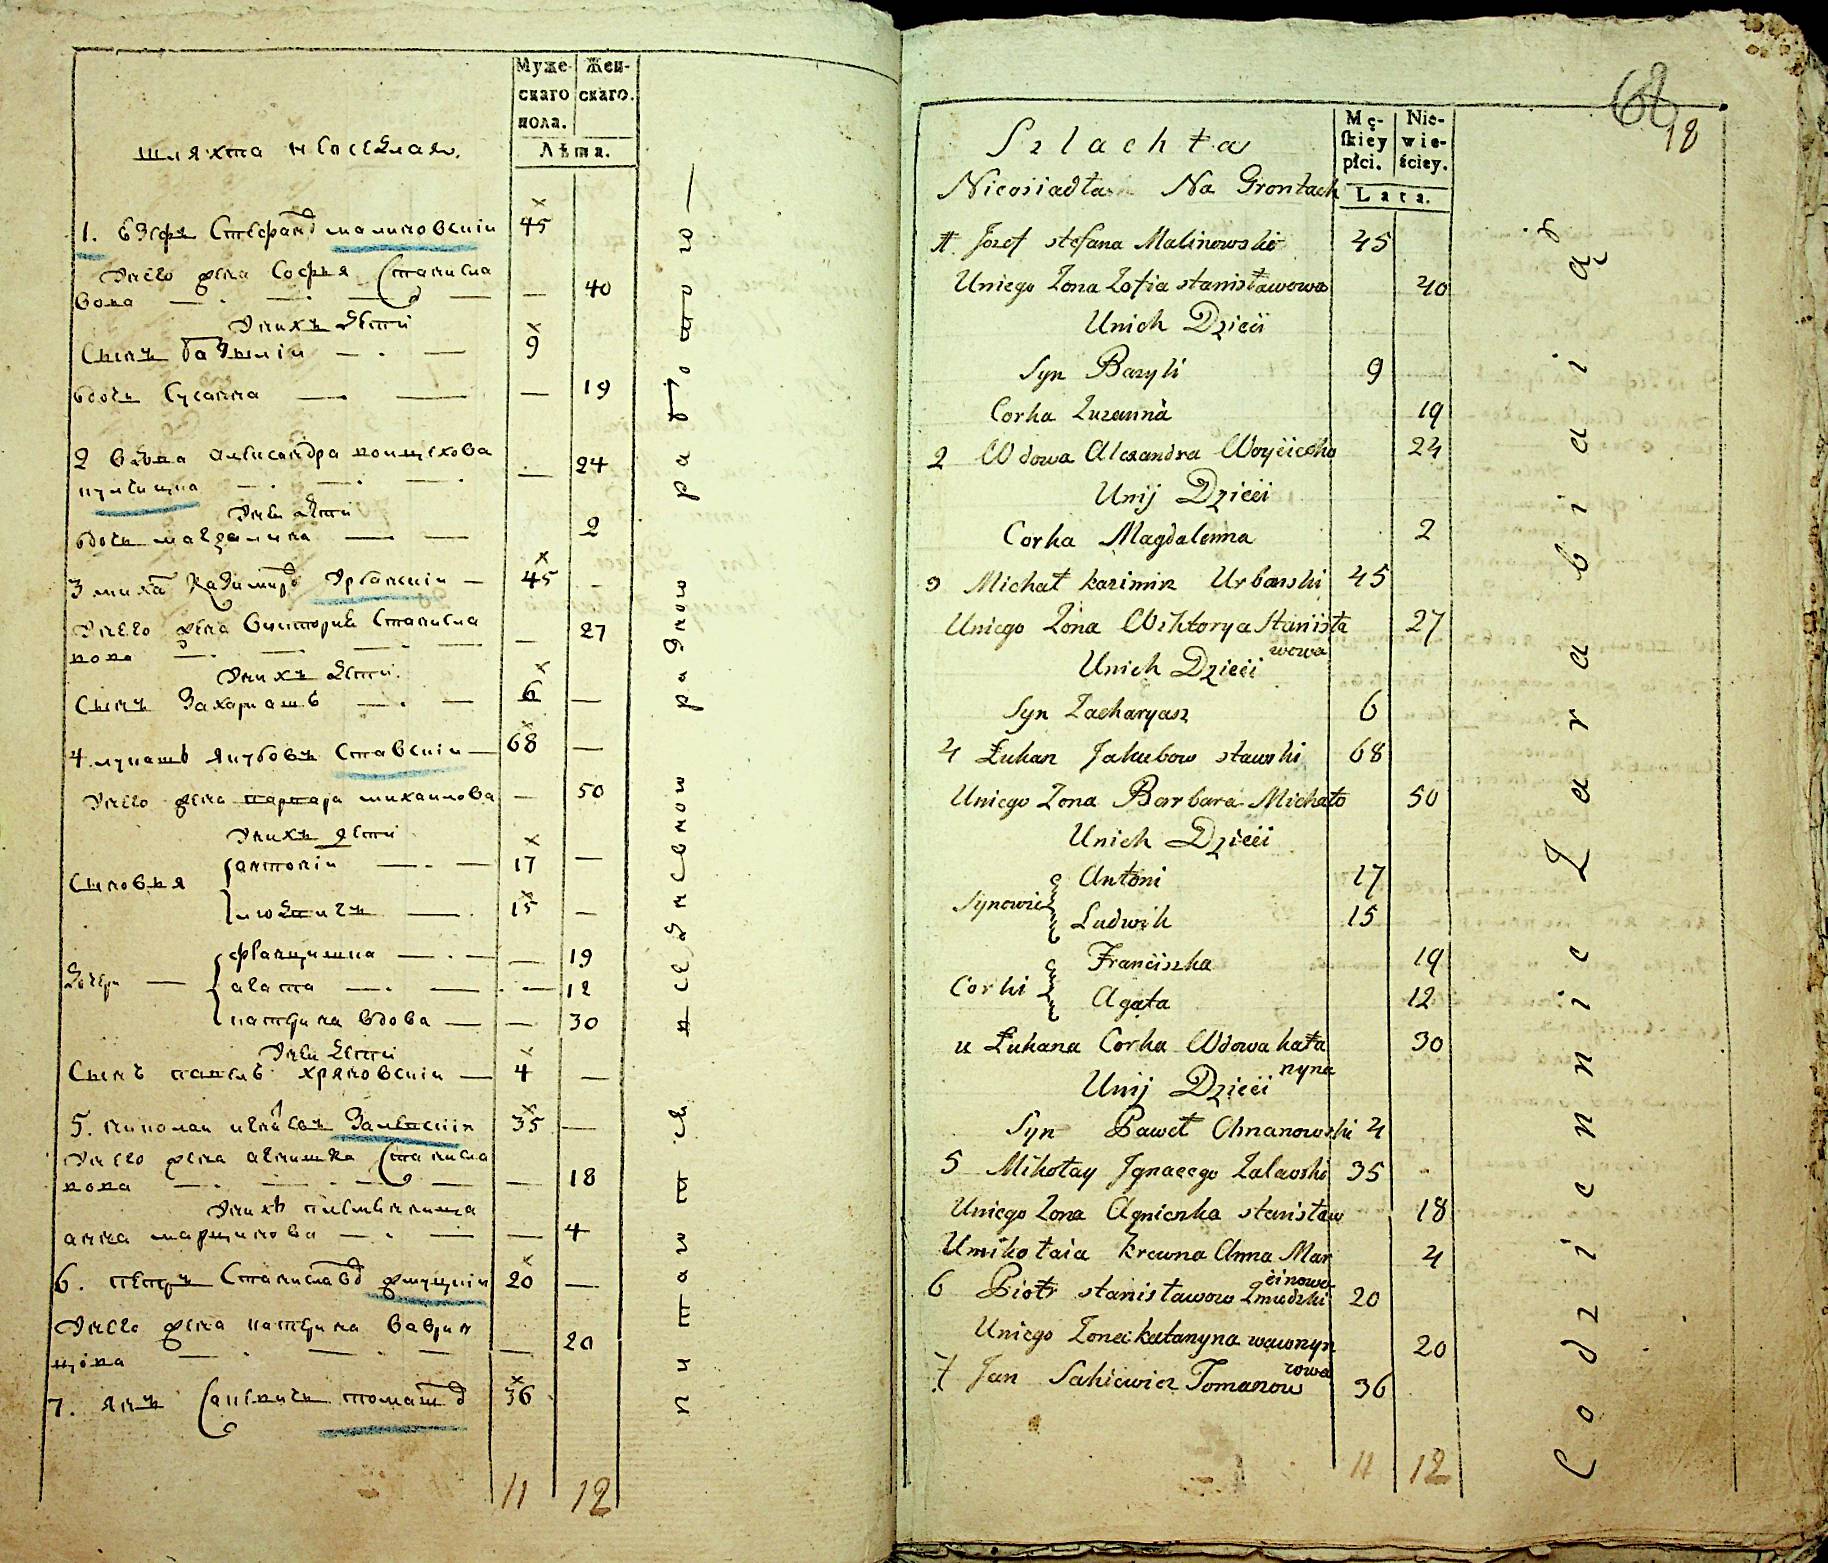 Муже-
скаго
пола.
Жен-
скаго.
Лѣта.
шляхта
1. Стефанд малиновскіи 45
жена Софья Станисла
вова — 40
дѣти
Сынъ базыліи — 9
дочь Сусанна — 19
2 вдова александра воицехова
— 24
дѣти
дочь магдалина — 2
3 миха казимирд Урбанскіи — 45
жена Викторіа Станисла
вова — 27
дѣти
Сынъ Захариашъ — 6
4. лукашъ якубовъ Ставскіи — 68
жена варвара михаилова — 50
дѣти
Сыновья
антоніи — 17
людвигъ — 15
дочери —
францишка — 19
агата — 12
катерина вдова — 30
дѣти
Сынъ павелъ — 4
5. николаи Залескіи 35
жена агнишка Станисла
вова — 18
анна марцинова — 4
6. петръ Станиславд жмуцкіи 20
жена катерина ваврин
цова — 20
7. янъ Сакевичъ томашд 36
11 12
работою —
разною
повседневною
питается
68
18
Szlachta
Nieosiadła Na Grontach
Mę-
skiey
płci.
Nie-
wie-
ściey.
Lata.
1. Jozef stefana Malinowski 45
Uniego Zona Zofia stanisławowa 40
Unich Dzieci
Syn Bazyli 9
Corka Zuzanna 19
2 Wdowa Alexandra Woyciecho 24
Unij Dzieci
Corka Magdalenna 2
3 Michał kazimirz Urbanski 45
Uniego Zona Wiktorya Stanisła 27
wowa
Unich Dzieci
Syn Zacharyasz 6
4 Łukasz Jakubow stawski 68
Uniego Zona Barbara Michało 50
Unich Dzieci
Antoni 17
Synowie
Ludwik 15
Franciszka 19
Corki
Agata 12
u Łukasza Corka Wdowa kata 30
rzyna
Unij Dzieci
Syn Paweł Chrzanowski 4
5 Mikołay Jgnacego Zaleski 35
Uniego Zona Agnieszka stanisław 18
Umikołaia krewna Anna Mar 4
cinowa
6 Piotr stanisławow Zmudzki 20
Uniego Zona katarzyna wawrzyn 20
cowa
7 Jan Sakiewicz Tomaszow 36
11 12
Codziennie Zarabiaią